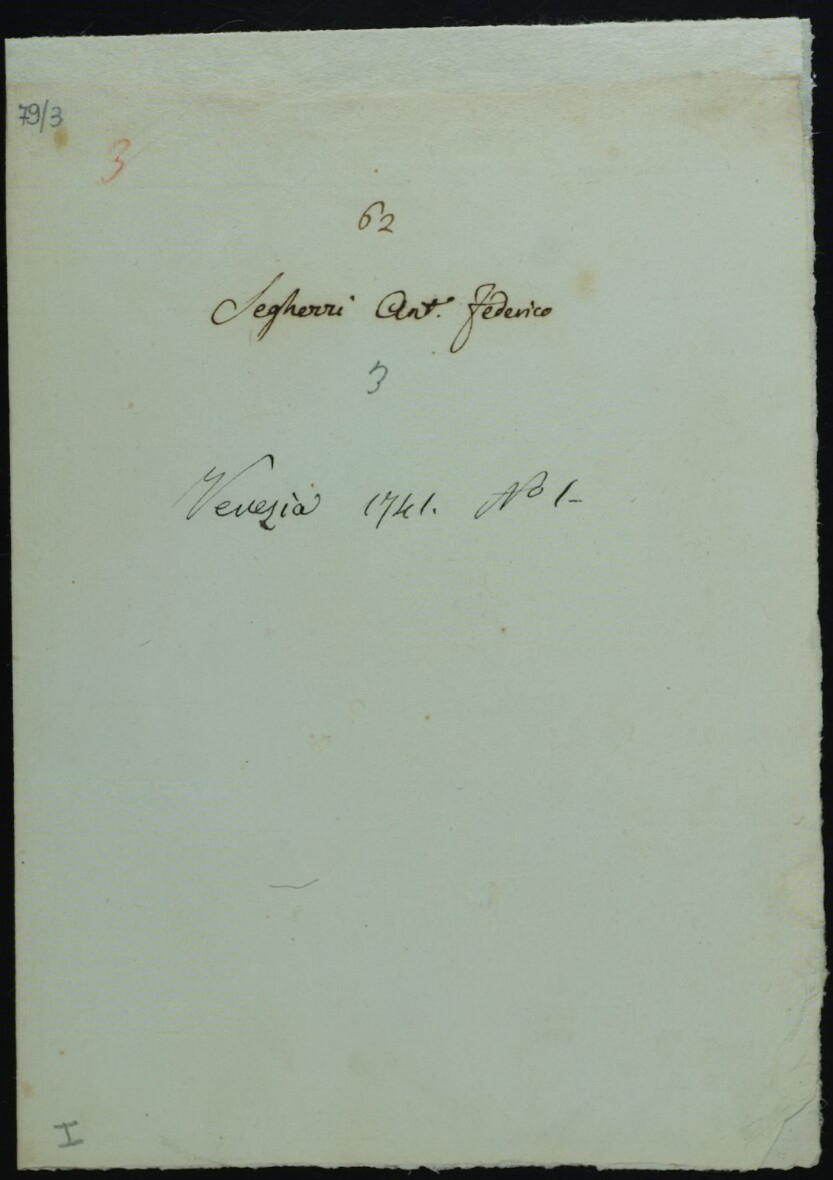 79/3
3
62
Segherri Ant. Federico
3
Venezia 1741. No 1-
I